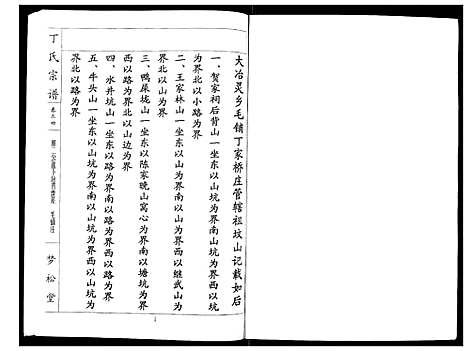 大冶灵乡毛铺丁家桥庄管辖祖坟山记载如后
一、贺家祠后背山一坐东以山坑为界南以山坑为界西以山坑
为界北以小路为界
二、王家林山一坐东以山坑为界南以山坑为界西以继武山为
界北以山坑为界
三、鸭屎垅山一坐东以陈家晚山窝心为界南以塘坑为界
西以路为界北以山边为界
四、水井坑山一坐东以路为界南以路为界西以路为界
北以山坑为界
五、牛头山一坐东以山坑为界南以山坑为界西以山坑为
界北以路为界
丁氏宗谱
梦松堂